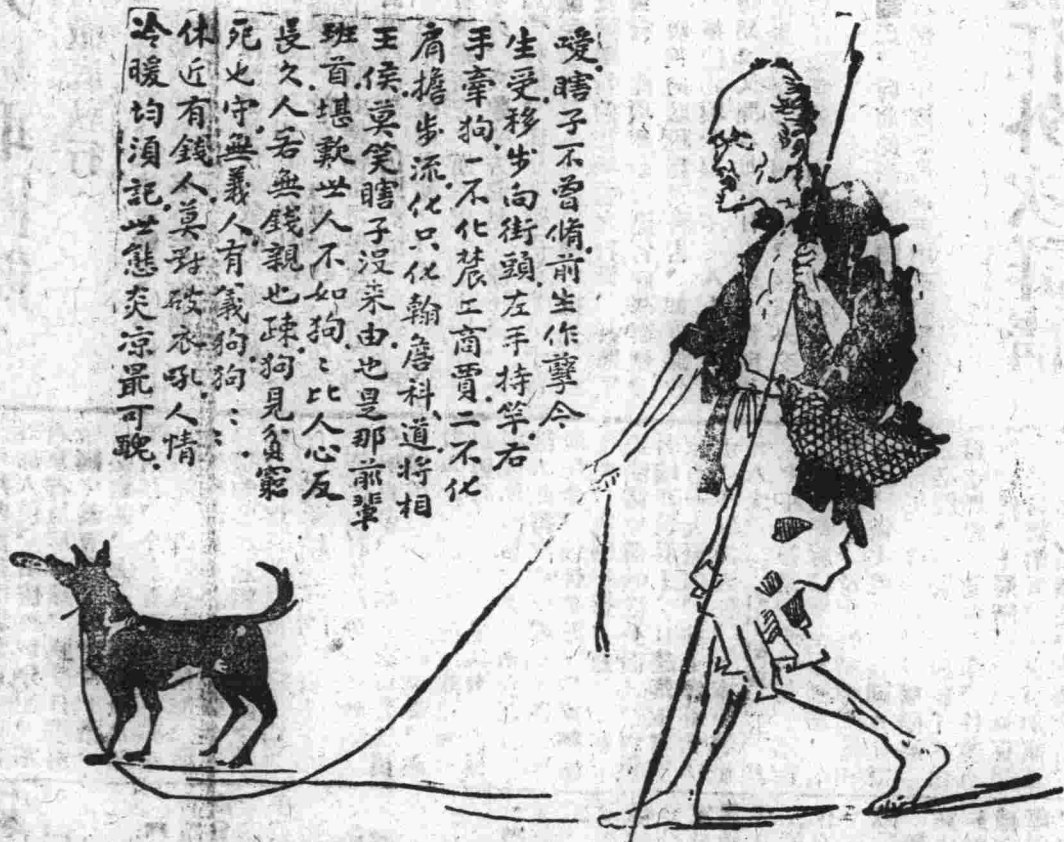 嗳.瞎子不曾脩.前生作孽今
生受.移步向街頭.左手持竿.右
手牽狗.一不化農工商賈.二不化
肩擔步流.化只化翰詹科道.將相
王侯.莫笑瞎子沒来由.也是那前輩
班首.堪歎世人不如狗.〻比人心反
長久.人若無錢親也疎.狗見貧窮
死也守.無義人.有義狗.狗:::.
休近有錢人.莫對破衣吼.人情
冷暖均須記.世態炎凉最可醜.